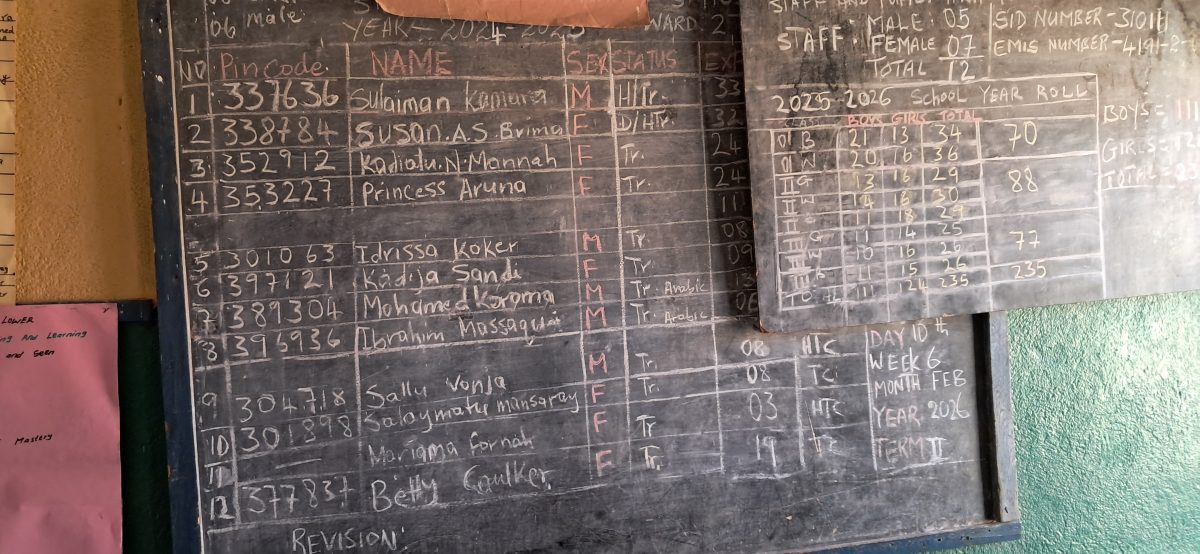 06 Male
YEAR - 2024 - 2025 WARD
NO Pin Code NAME SEX STATUS
1 337636 Sulaiman Kamara M H/Tr. 33
2 338784 Susan.A.S. Brima F D/HTr. 32
3 352912 Kadiatu.N.Mannah F Tr. 24
4 353227 Princess Aruna F Tr. 24
11
5 301063 Idrissa Koker M Tr. 08
6 397121 Kadija Sandi F Tr. 09
7 389304 Mohamed Koroma M Tr. Arabic
8 396936 Ibrahim Massaquoi M Tr. Arabic
9 304718 Sallu Vonja M Tr. 08 HTC
10 301898 Salaymatu Mansaray F Tr. 08 TC
11 — Mariama Fornah F Tr 03 HTC
12 377837 Betty Caulker F Tr. 19 TC
REVISION
DAY 10th
WEEK 6
MONTH FEB
YEAR 2026
TERM II
STAFF : MALE : 05
FEMALE 07
TOTAL 12
SID NUMBER - 3101
EMIS NUMBER - 4191-2-
2025-2026 School YEAR ROLL
BOYS GIRLS TOTAL
B 21 13 34 70
W 20 16 36
II G 13 16 29 88
II W 14 16 30
11 18 29
G 11 14 25 77
W 10 16 26
11 15 26
TOTAL 111 124 235 235
BOYS =
GIRLS =
TOTAL =
LOWER
And Learning
and Seen
Mastery